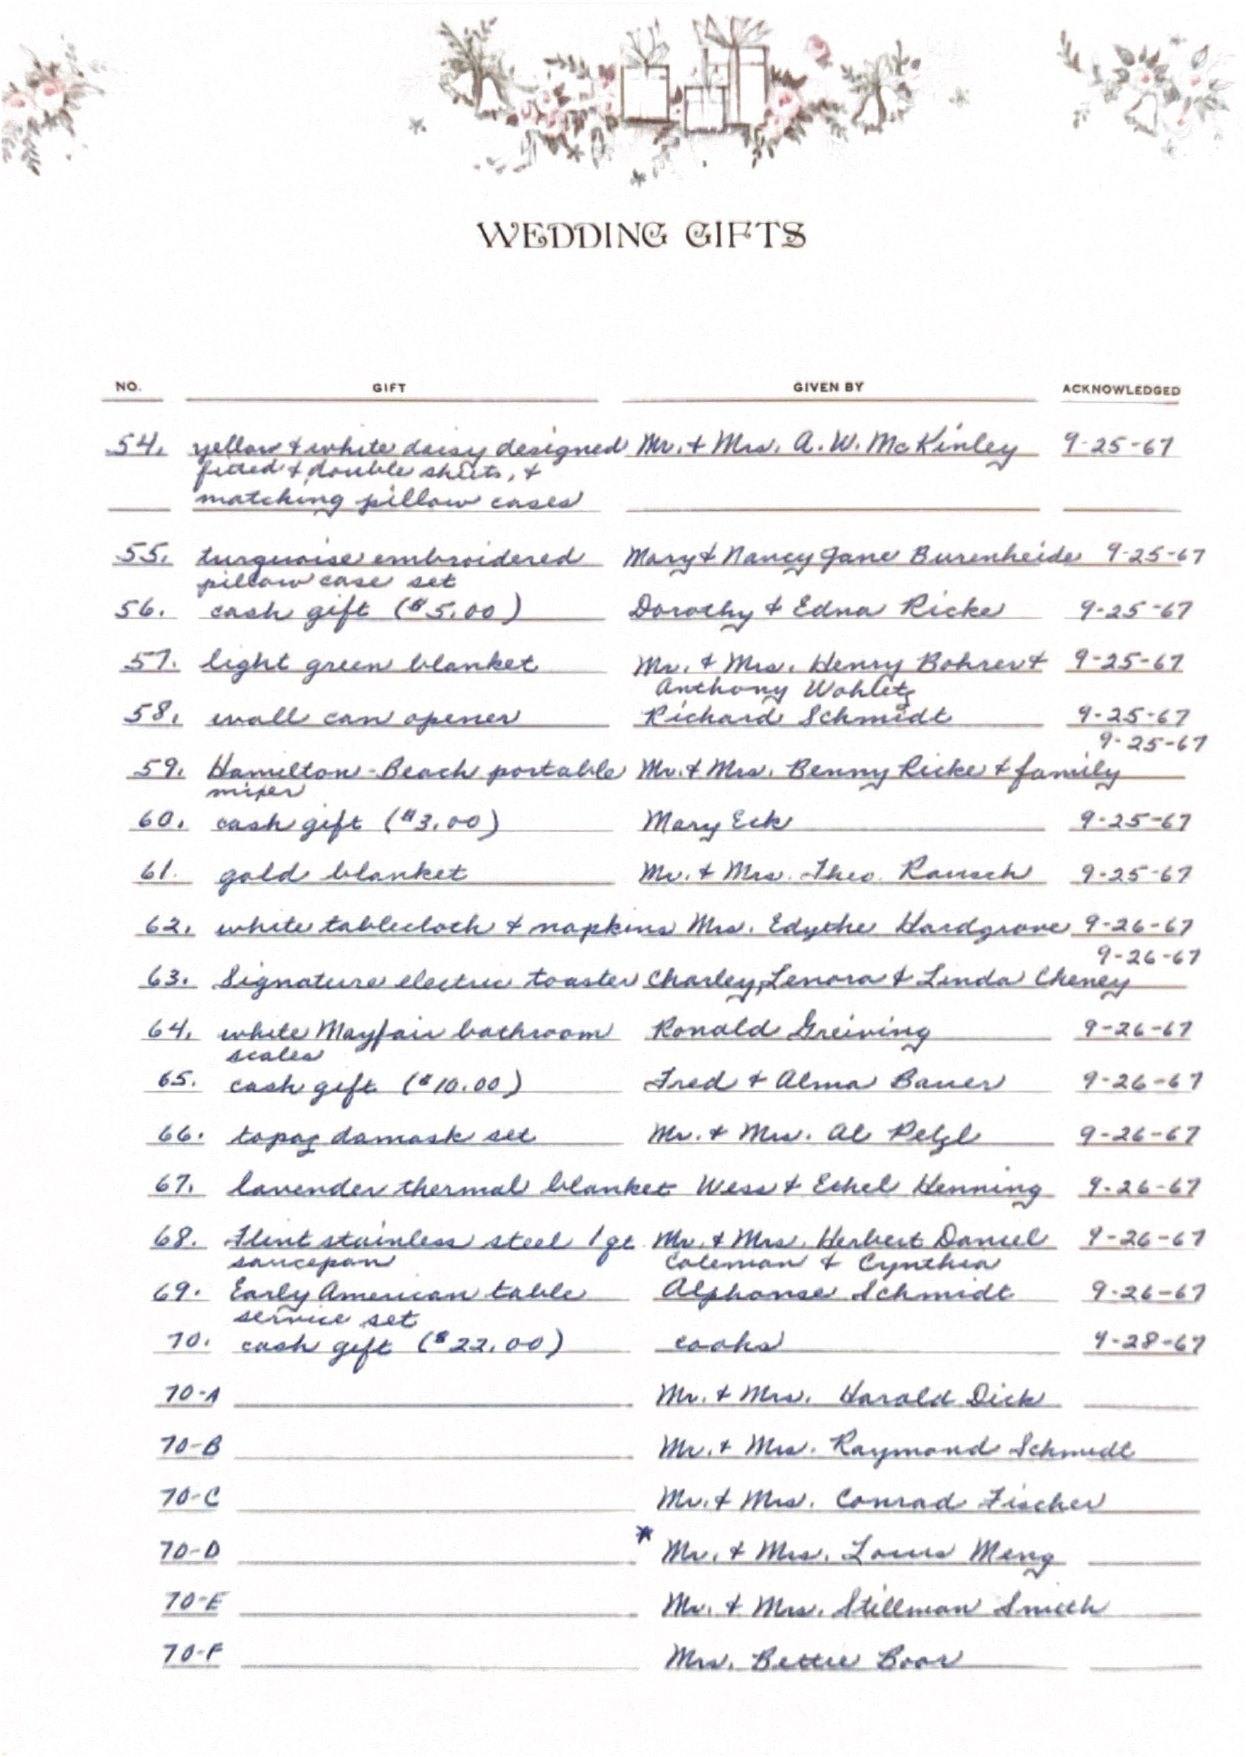 WEDDING GIFTS
NO. GIFT GIVEN BY ACKNOWLEDGED
54. yellow & white daisy designed Mr. & Mrs. A. W. McKinley 9-25-67
fitted & double sheets, &
matching pillow cases
55. turquoise embroidered Mary & Nancy Jane Burenheide 9-25-67
pillow case set
56. cash gift ($5.00) Dorothy & Edna Ricke 9-25-67
57. light green blanket Mr. & Mrs. Henry Bohrer & 9-25-67
Anthony Wohletz
58. wall can opener Richard Schmidt 9-25-67
9-25-67
59. Hamilton-Beach portable Mr. & Mrs. Benny Ricke & family
mixer
60. cash gift ($3.00) Mary Eck 9-25-67
61. gold blanket Mr. & Mrs. Theo. Rausch 9-25-67
62. white tablecloth & napkins Mrs. Edythe Hardgrove 9-26-67
9-26-67
63. Signature electric toaster Charley, Lenora & Linda Cheney
64. white Mayfair bathroom Ronald Greiving 9-26-67
scales
65. cash gift ($10.00) Fred & Alma Bauer 9-26-67
66. topaz damask set Mr. & Mrs. Al Pelzl 9-26-67
67. lavender thermal blanket Wess & Ethel Henning 9-26-67
68. Flint stainless steel 1 qt. Mr. & Mrs. Herbert Daniel 9-26-67
saucepan Coleman & Cynthia
69. Early American table Alphonse Schmidt 9-26-67
service set
70. cash gift ($22.00) cooks 9-28-67
70-A Mr. & Mrs. Harold Dick
70-B Mr. & Mrs. Raymond Schmidt
70-C Mr. & Mrs. Conrad Fischer
70-D * Mr. & Mrs. Louis Meng
70-E Mr. & Mrs. Stillman Smith
70-F Mrs. Bettie Boor